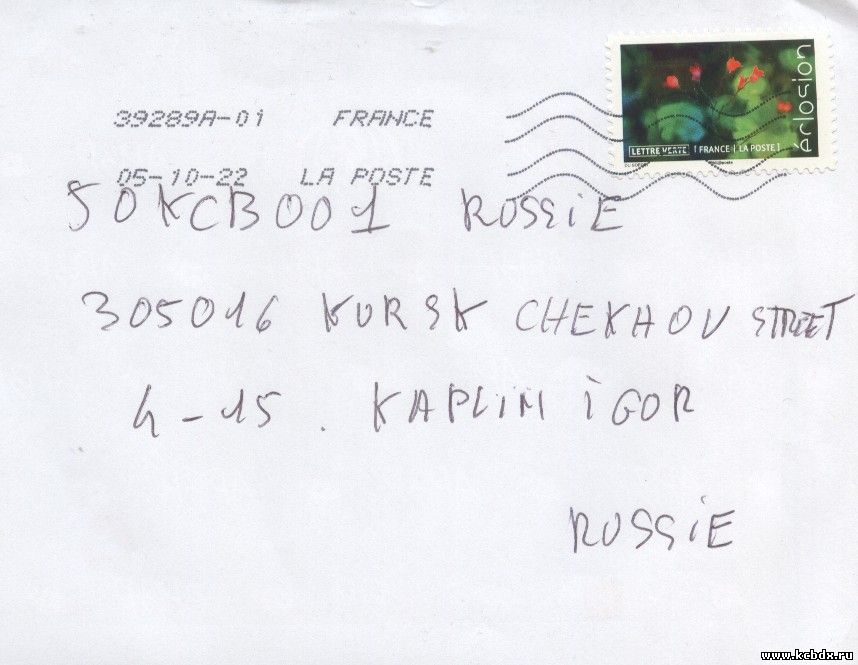 éclosion
LETTRE VERTE [ FRANCE | LA POSTE ]
39289A-01 FRANCE
05-10-22 LA POSTE
50KCB001 ROSSiE
305016 KURSK CHEKHOV STREET
4-15. KAPLIN iGOR
RUSSiE
www.kcbdx.ru